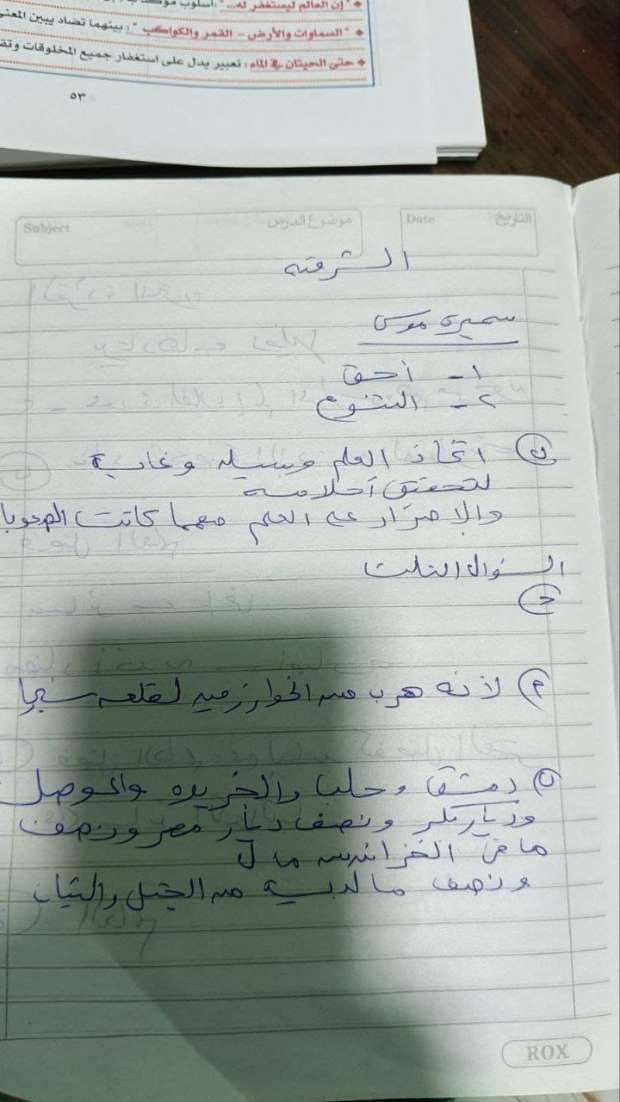 "إن العالم ليستغفر له..." : أسلوب
"السماوات والأرض - القمر والكواكب" : بينهما تضاد يبين المعنى
حتى الحيتان في الماء : تعبير يدل على استغفار جميع المخلوقات
٥٣
Subject موضوع الدرس Date التاريخ
سميرة موسى
١- أحق
٢- التنوع
اتخاذ العلم وسيله وغاية
لتحقق أحلامه
والاصرار على العلم مهما كانت الصعوبا
السؤال التلت
ج
م) لأنه هرب من الخوارزميه لقلعه سنجا
ن) دمشق وحلب والخريره والموصل
وديار بكر ونصف ديار مصر ونصف
ما في الخزائن من مال
ونصف ما لديه من الخيل والثياب
ROX